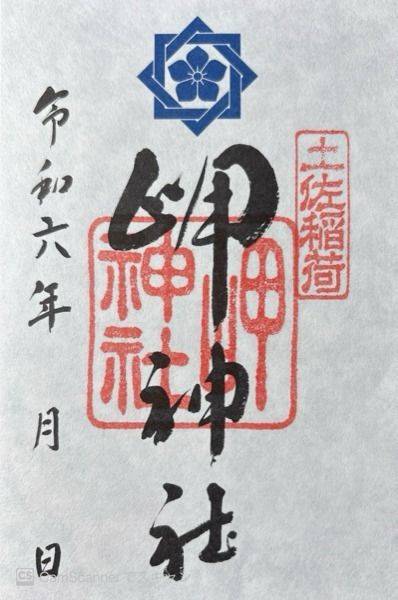 土佐稲荷
岬神社
岬神社
令和六年 月 日
CS CamScanner